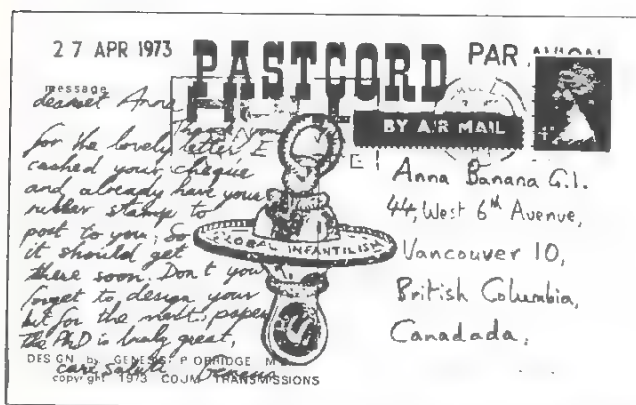 27 APR 1973
PASTCORD
PAR AVION
BY AIR MAIL
message
dearest Anna
Thank you
for the lovely letter I
cashed your cheque
and already have your
rubber stamp to
post to you, So
it should get
there soon. Don't you
forget to design your
bit for the next paper
the PhD is truly great,
care, salute Genesis
GLOBAL INFANTILISM
Anna Banana G.I.
44, West 6th Avenue,
Vancouver 10,
British Columbia,
Canadada,
DESIGN by GENESIS P ORRIDGE
copyright 1973 COUM TRANSMISSIONS